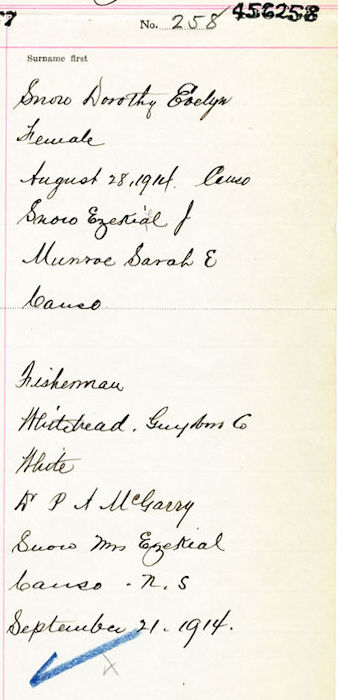 No. 258 456258
Surname first
Snow Dorothy Evelyn
Female
August 28, 1914. Canso
Snow Ezekial J
Munroe Sarah E
Canso
Fisherman
Whitehead. Guysboro Co
White
Dr P A McGarry
Snow Mrs Ezekial
Canso - N. S
September 21. 1914.